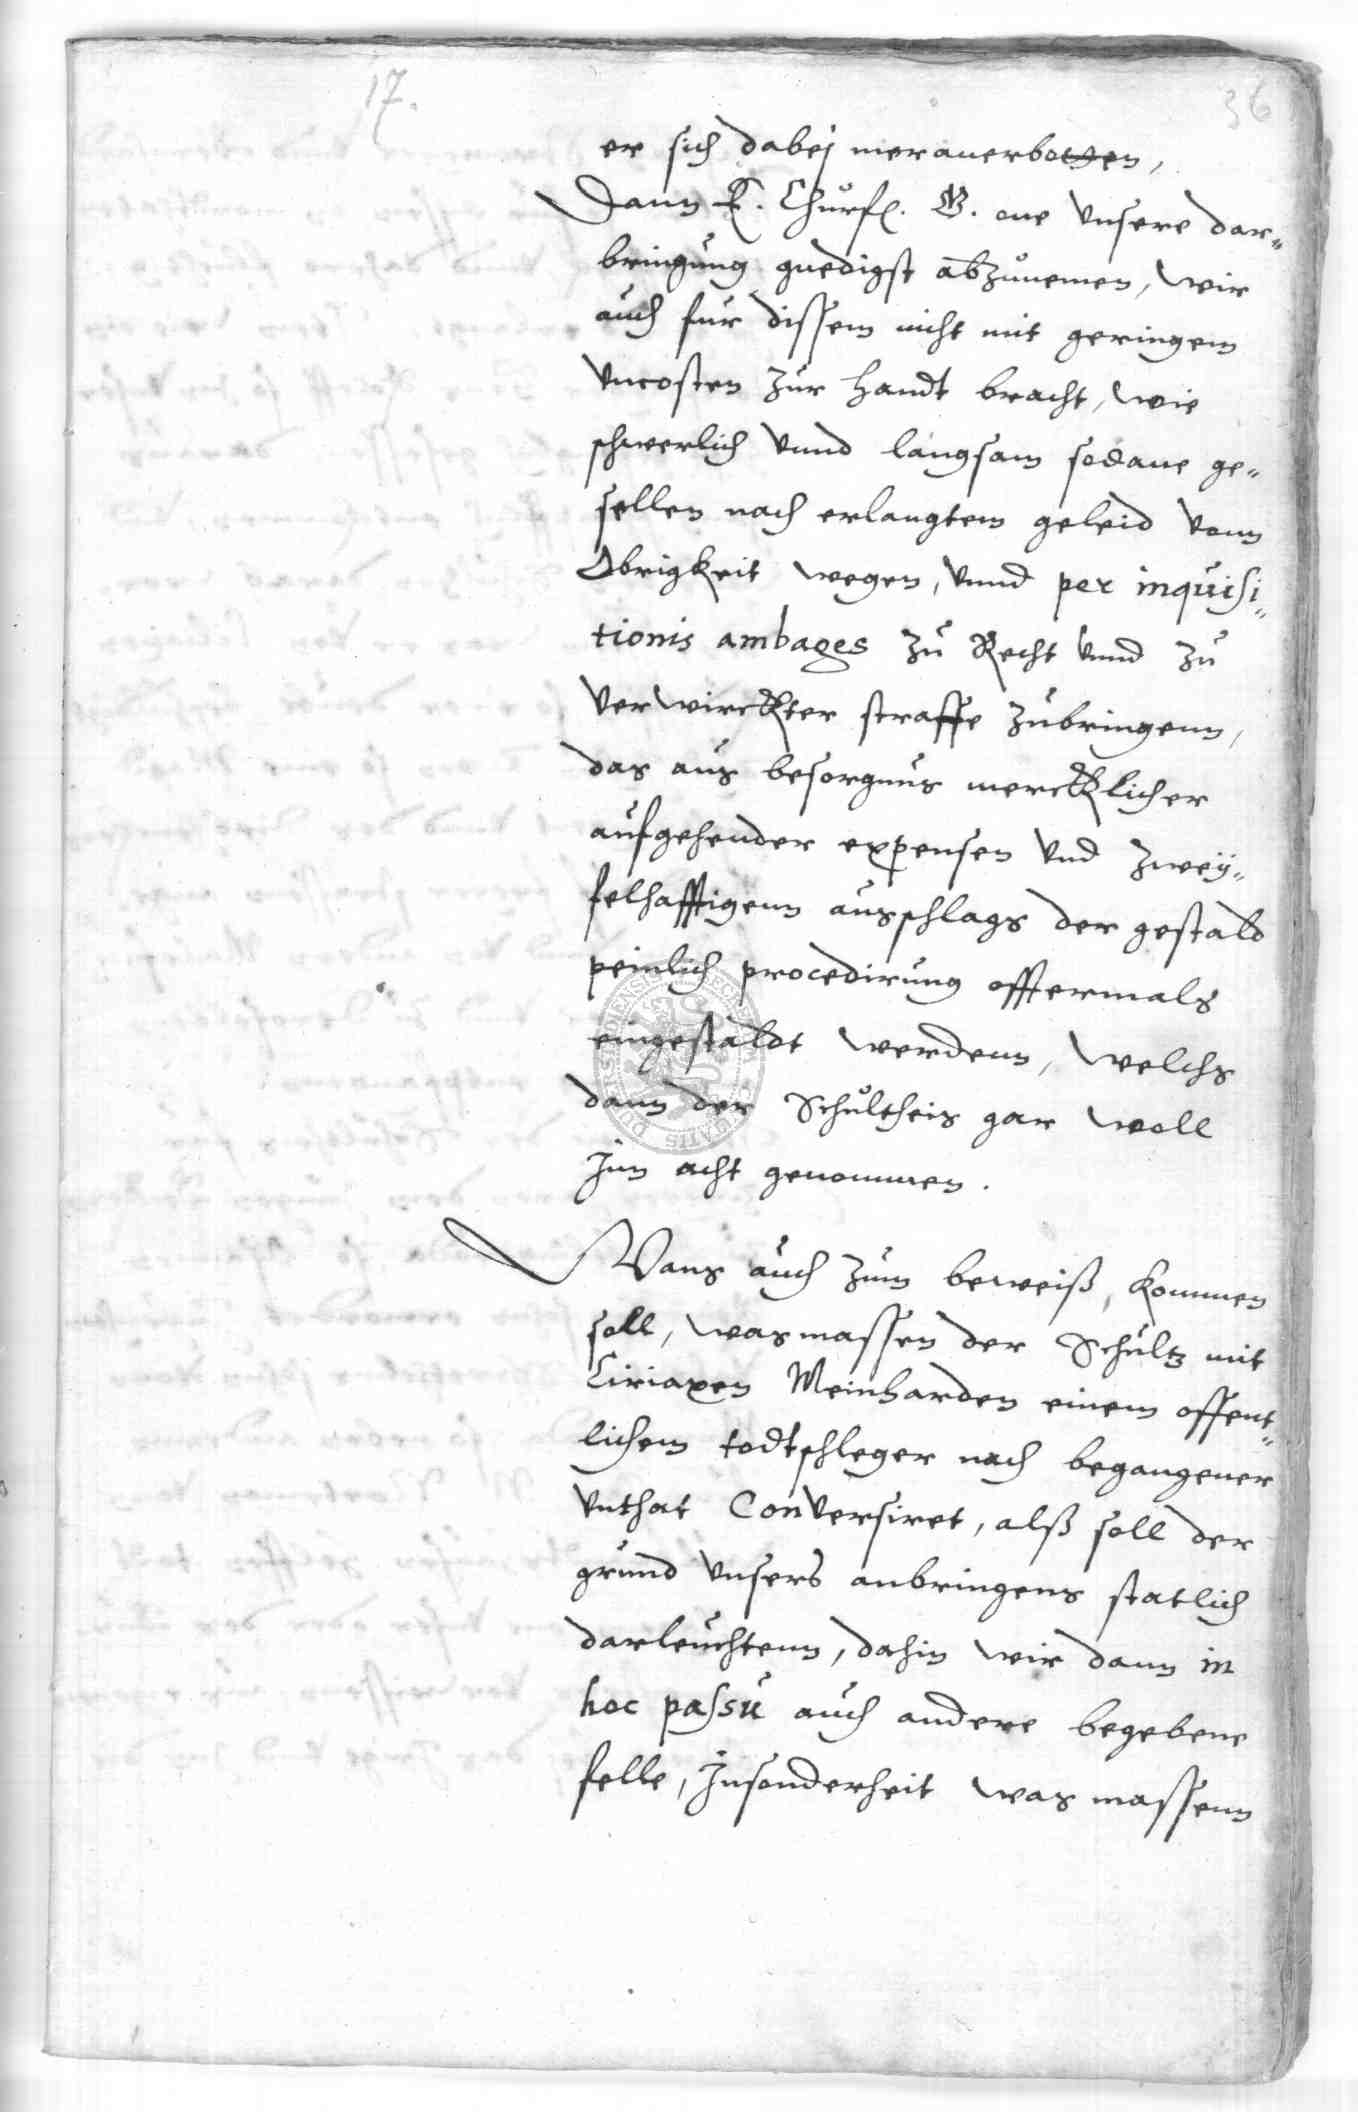 17.
36
er sich dabej mer anerbotten,
Dann E. Churfl. G. one unsere dar„
bringung gnedigst abzunemen, wir
auch fur dissem nicht mit geringem
Vncosten zur handt bracht, wie
schwerlich vnnd langsam sodane ge„
sellen nach erlangtem geleid vonn
Obrigkeit wegen, vnnd per inquisi„
tionis ambages zu Recht vnnd zu
verwirckter straffe zubringenn,
das aus besorgnus mercklicher
aufgehender expensen vnd zwey„
felhafftigenn ausschlags der gestald
peinlich procedirung offtermals
eingestaldt werdenn, welchs
dann der Schultheis gar woll
Jnn acht genommen.
Wans auch zum beweiß, kommen
soll, was massen der Schultz mit
Ciriaxen Meinharden einem offent„
lichem todtschleger nach begangener
vnthat Conversiret, alß soll der
grund vnsers anbringens statlich
darleuchtenn, dahin wir dann in
hoc passu auch andere begebene
felle, Jnsonderheit was massenn